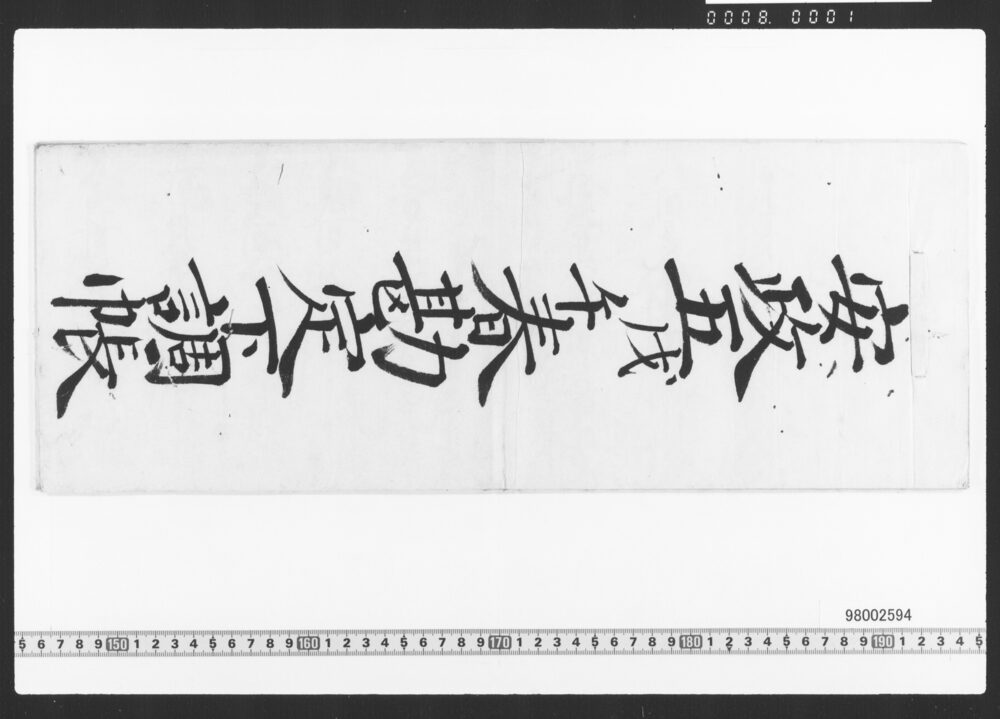 0008. 0001
安政五戊午春勘定下調帳
98002594
5 6 7 8 9 150 1 2 3 4 5 6 7 8 9 160 1 2 3 4 5 6 7 8 9 170 1 2 3 4 5 6 7 8 9 180 1 2 3 4 5 6 7 8 9 190 1 2 3 4 5